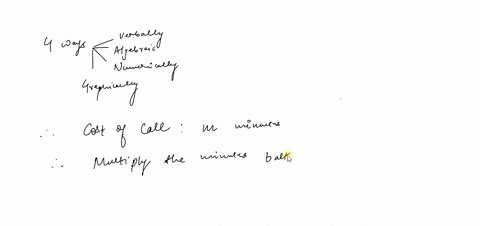 4 ways
Verbally
Algebraic
Numerically
Graphically
∴ Cost of Call : m minutes
∴ Multiply the minutes